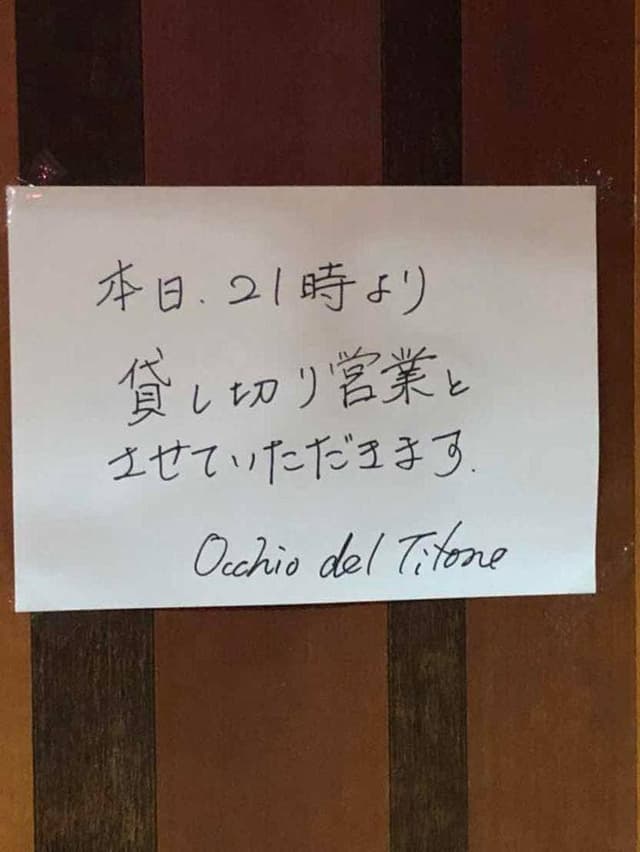 本日、21時より
貸し切り営業と
させていただきます.
Occhio del Titone